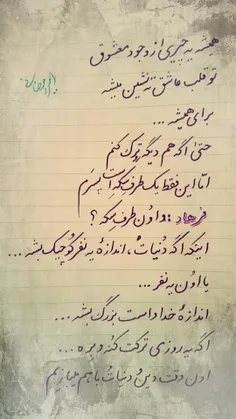 همیشه یه چیزی از وجود معشوق
تو قلب عاشق ته نشین میشه
برای همیشه ...
حتیٰ اگه هم دیگه رو ترک کنم
امّا این فقط یک طرف سکه است پسرم
فرهاد : و اون طرف سکه ؟
اینکه اگه دنیات ، اندازهٔ یه نفر کوچیک بشه ...
یا اون یه نفر ...
اندازهٔ خدا واست بزرگ بشه ...
اگه یه روزی ترکت کنه و بره ...
اون وقت دین و دنیات با هم میبازیم